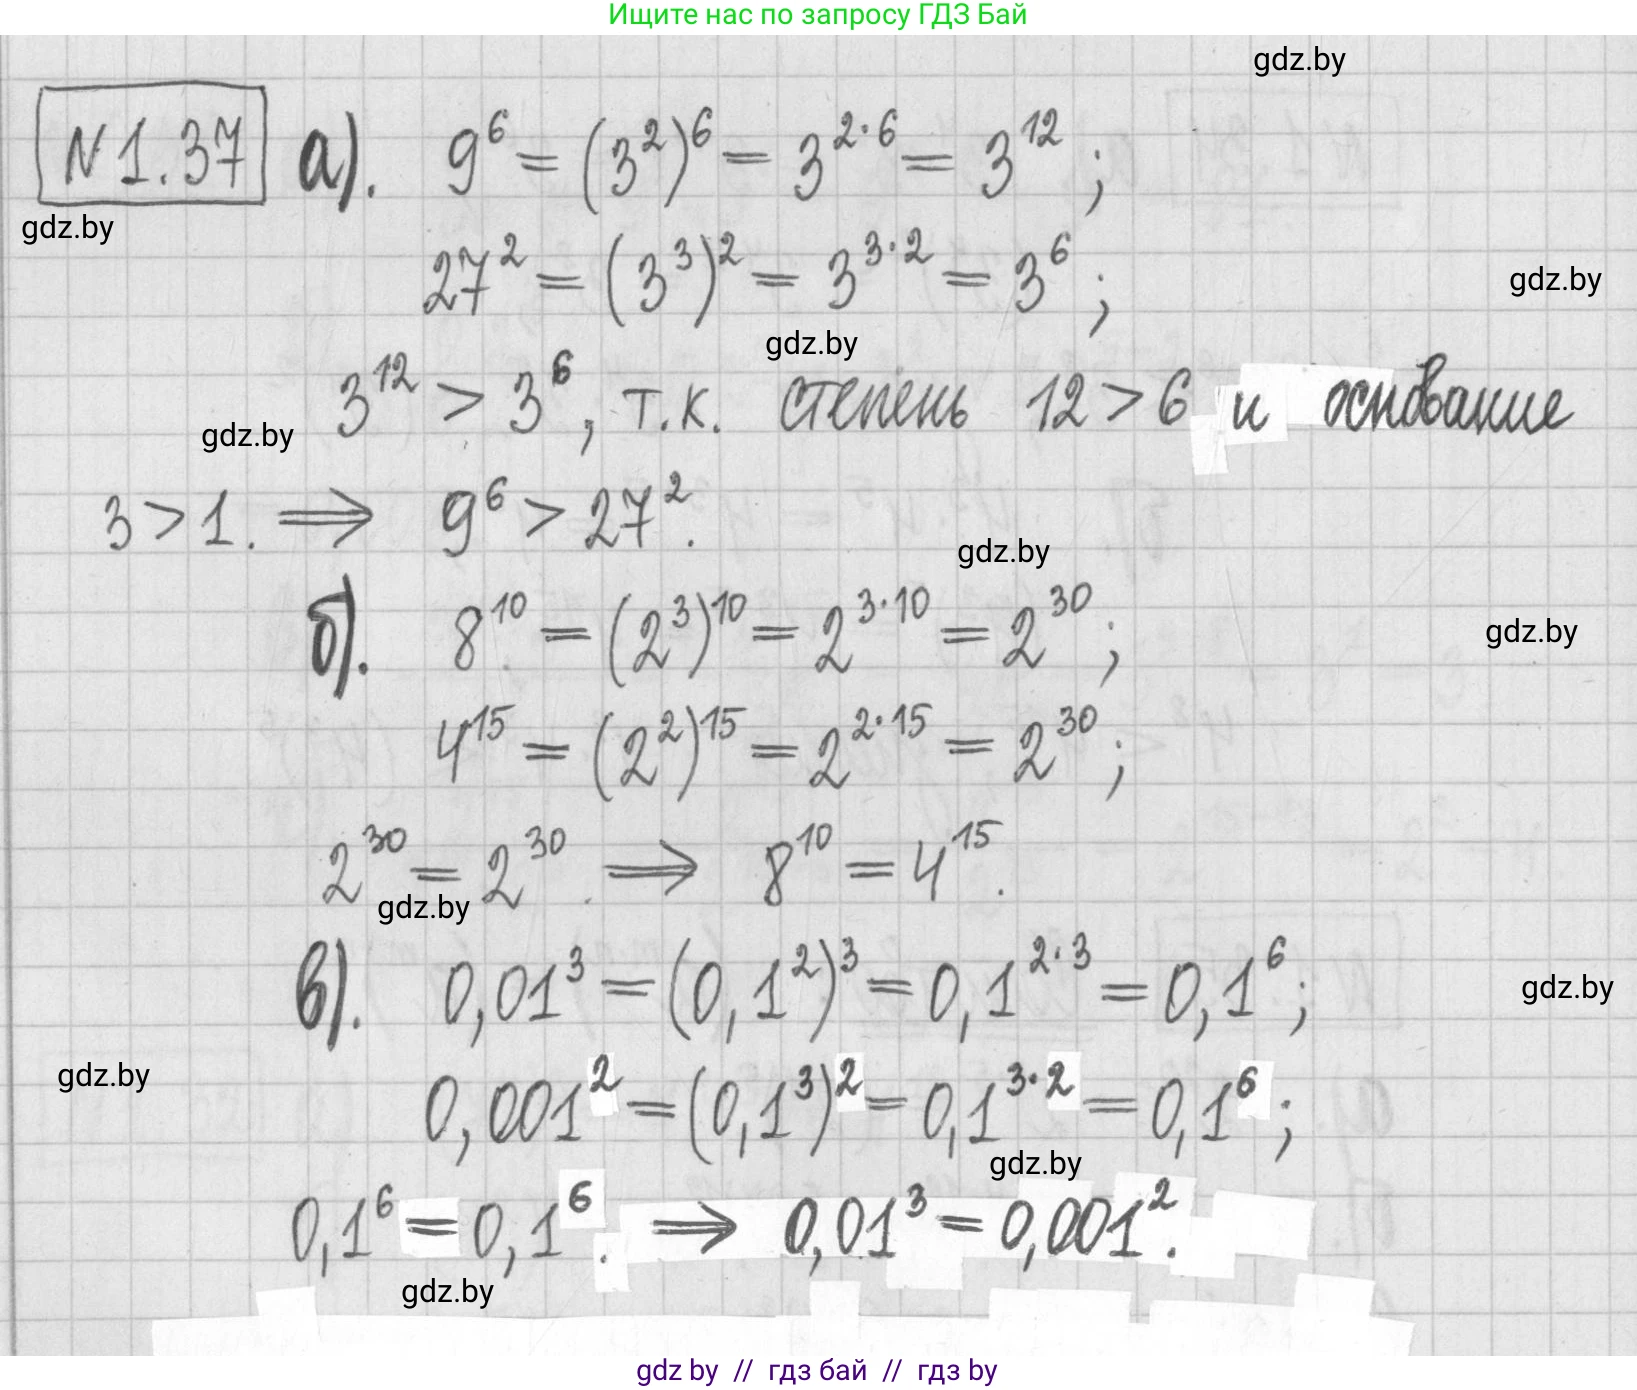 Ищите нас по запросу ГДЗ Бай
gdz.by
№1.37 а). 9⁶ = (3²)⁶ = 3^{2·6} = 3¹² ;
gdz.by
27² = (3³)² = 3^{3·2} = 3⁶ ;
gdz.by
gdz.by
3¹² > 3⁶, т.к. степень 12 > 6 и основание
gdz.by
3 > 1. ⇒ 9⁶ > 27².
gdz.by
б). 8¹⁰ = (2³)¹⁰ = 2^{3·10} = 2³⁰ ;
gdz.by
4¹⁵ = (2²)¹⁵ = 2^{2·15} = 2³⁰ ;
2³⁰ = 2³⁰. ⇒ 8¹⁰ = 4¹⁵.
gdz.by
в). 0,01³ = (0,1²)³ = 0,1^{2·3} = 0,1⁶ ;
gdz.by
gdz.by
0,001² = (0,1³)² = 0,1^{3·2} = 0,1⁶ ;
gdz.by
0,1⁶ = 0,1⁶. ⇒ 0,01³ = 0,001².
gdz.by
gdz by // гдз бай // гдз by